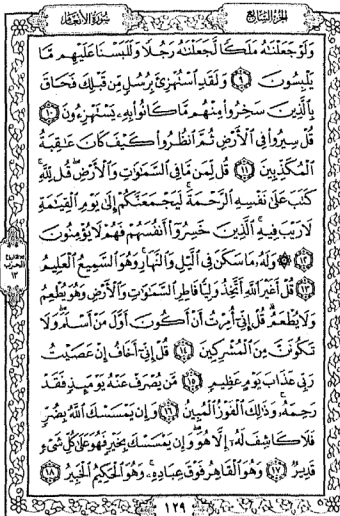 الجزء السابع
سورة الأنعام
وَلَوْ جَعَلْنَٰهُ مَلَكًا لَّجَعَلْنَٰهُ رَجُلًا وَلَلَبَسْنَا عَلَيْهِم مَّا
يَلْبِسُونَ ٩ وَلَقَدِ ٱسْتُهْزِئَ بِرُسُلٍ مِّن قَبْلِكَ فَحَاقَ
بِٱلَّذِينَ سَخِرُوا۟ مِنْهُم مَّا كَانُوا۟ بِهِۦ يَسْتَهْزِءُونَ ١٠
قُلْ سِيرُوا۟ فِى ٱلْأَرْضِ ثُمَّ ٱنظُرُوا۟ كَيْفَ كَانَ عَٰقِبَةُ
ٱلْمُكَذِّبِينَ ١١ قُل لِّمَن مَّا فِى ٱلسَّمَٰوَٰتِ وَٱلْأَرْضِ ۖ قُل لِّلَّهِ ۚ
كَتَبَ عَلَىٰ نَفْسِهِ ٱلرَّحْمَةَ ۚ لَيَجْمَعَنَّكُمْ إِلَىٰ يَوْمِ ٱلْقِيَٰمَةِ
لَا رَيْبَ فِيهِ ۚ ٱلَّذِينَ خَسِرُوٓا۟ أَنفُسَهُمْ فَهُمْ لَا يُؤْمِنُونَ
١٢ ۞ وَلَهُۥ مَا سَكَنَ فِى ٱلَّيْلِ وَٱلنَّهَارِ ۚ وَهُوَ ٱلسَّمِيعُ ٱلْعَلِيمُ
١٣ قُلْ أَغَيْرَ ٱللَّهِ أَتَّخِذُ وَلِيًّا فَاطِرِ ٱلسَّمَٰوَٰتِ وَٱلْأَرْضِ وَهُوَ يُطْعِمُ
وَلَا يُطْعَمُ ۗ قُلْ إِنِّىٓ أُمِرْتُ أَنْ أَكُونَ أَوَّلَ مَنْ أَسْلَمَ ۖ وَلَا
تَكُونَنَّ مِنَ ٱلْمُشْرِكِينَ ١٤ قُلْ إِنِّىٓ أَخَافُ إِنْ عَصَيْتُ
رَبِّى عَذَابَ يَوْمٍ عَظِيمٍ ١٥ مَّن يُصْرَفْ عَنْهُ يَوْمَئِذٍ فَقَدْ
رَحِمَهُۥ ۚ وَذَٰلِكَ ٱلْفَوْزُ ٱلْمُبِينُ ١٦ وَإِن يَمْسَسْكَ ٱللَّهُ بِضُرٍّ
فَلَا كَاشِفَ لَهُۥٓ إِلَّا هُوَ ۖ وَإِن يَمْسَسْكَ بِخَيْرٍ فَهُوَ عَلَىٰ كُلِّ شَىْءٍ
قَدِيرٌ ١٧ وَهُوَ ٱلْقَاهِرُ فَوْقَ عِبَادِهِۦ ۚ وَهُوَ ٱلْحَكِيمُ ٱلْخَبِيرُ ١٨
١٢٩